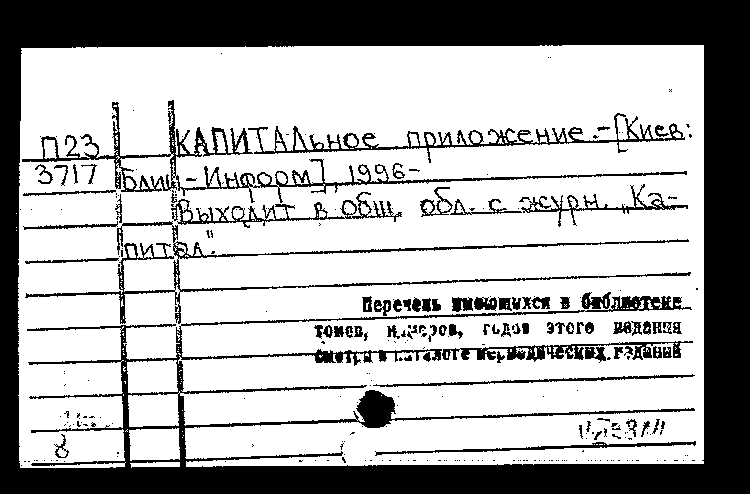 П23 КАПИТАЛьное приложение.-[Киев:
3717 Блиц-Информ], 1996-
Выходит в общ. обл. с журн. „Ка-
питал".
Перечень имеющихся в библиотеке
томов, номеров, годов этого издания
смотри в каталоге периодических изданий
8